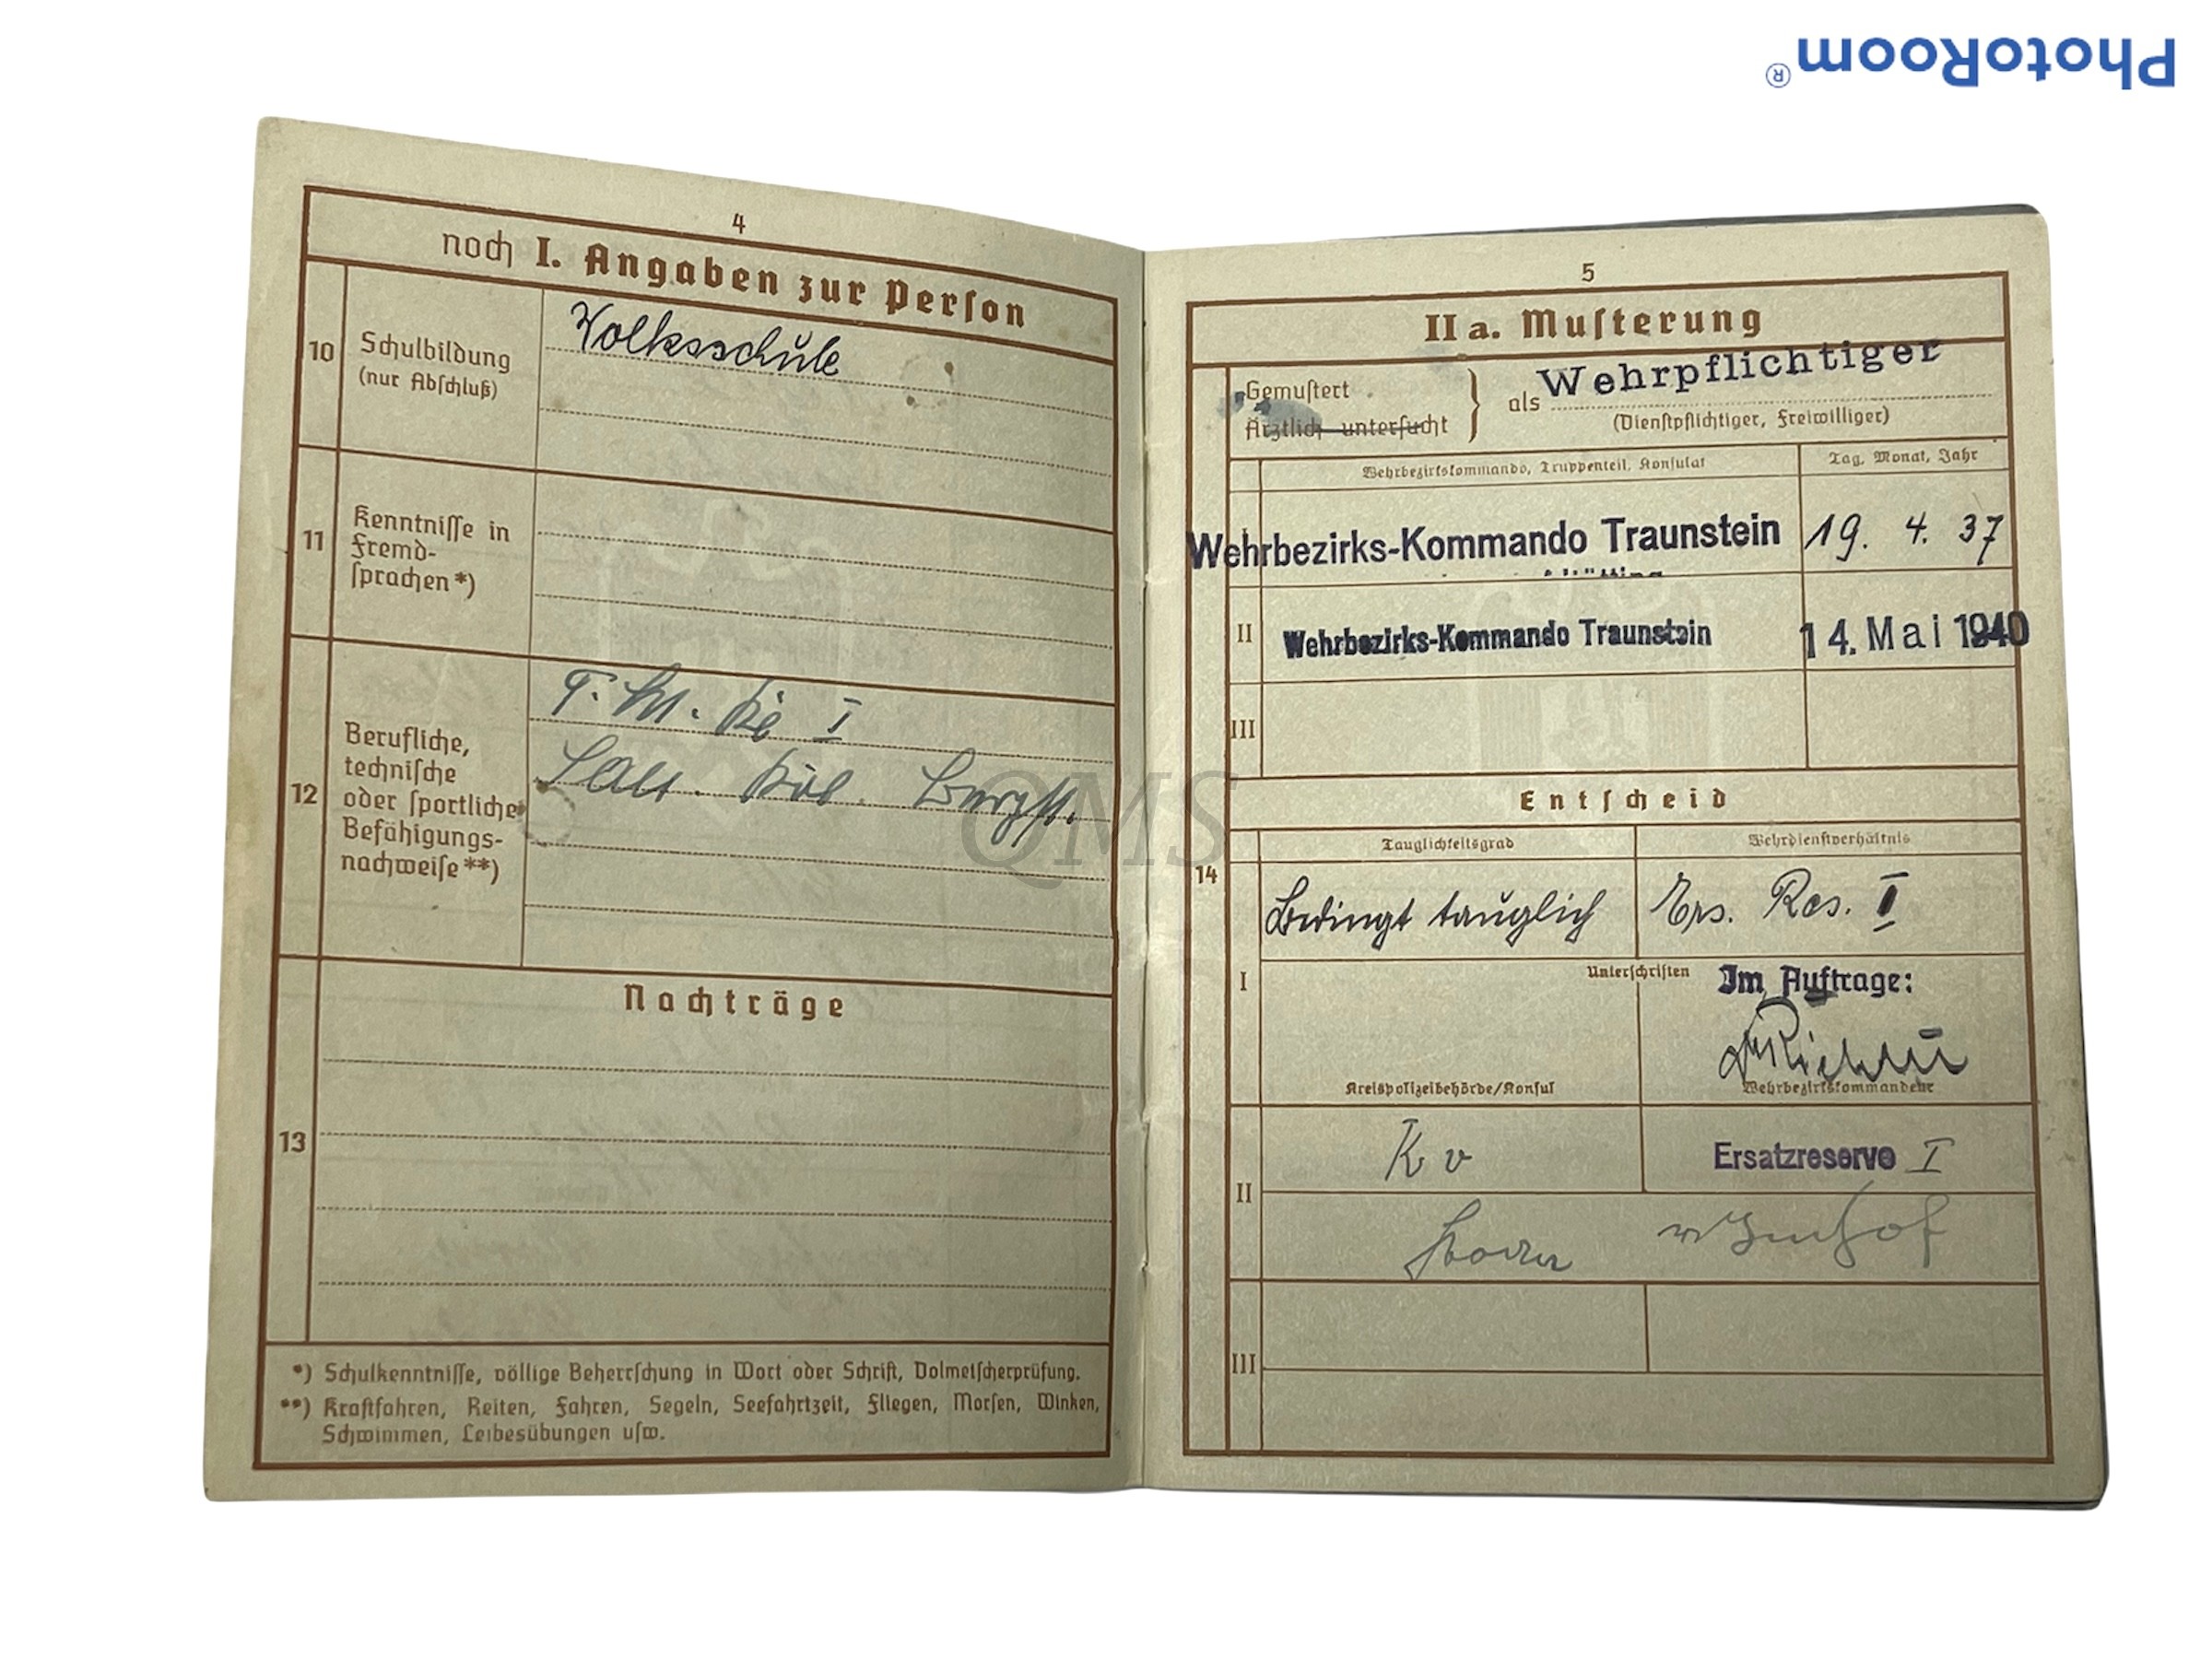 PhotoRoom®
4
noch I. Angaben zur Person
10
Schulbildung
(nur Abschluß)
Volksschule
11
Kenntnisse in
Fremd-
sprachen*)
12
Berufliche,
technische
oder sportliche
Befähigungs-
nachweise**)
I
QMS
Nachträge
13
*) Schulkenntnisse, völlige Beherrschung in Wort oder Schrift, Dolmetscherprüfung.
**) Kraftfahren, Reiten, Fahren, Segeln, Seefahrtzeit, Fliegen, Morsen, Winken,
Schwimmen, Leibesübungen usw.
5
IIa. Musterung
Gemustert
Ärztlich untersucht
als Wehrpflichtiger
(Dienstpflichtiger, Freiwilliger)
Wehrbezirkskommando, Truppenteil, Konsulat
Tag, Monat, Jahr
I
Wehrbezirks-Kommando Traunstein 19. 4. 37
II Wehrbezirks-Kommando Traunstein 14. Mai 1940
III
Entscheid
Tauglichkeitsgrad
Wehrdienstverhältnis
14
Bedingt tauglich
Ers. Res. I
I
Unterschriften
Im Auftrage:
Kreispolizeibehörde/Konsul
Wehrbezirkskommandeur
Kv
Ersatzreserve I
II
III